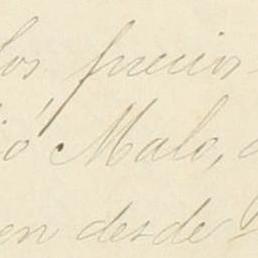 los precios
ió Malo,
en desde